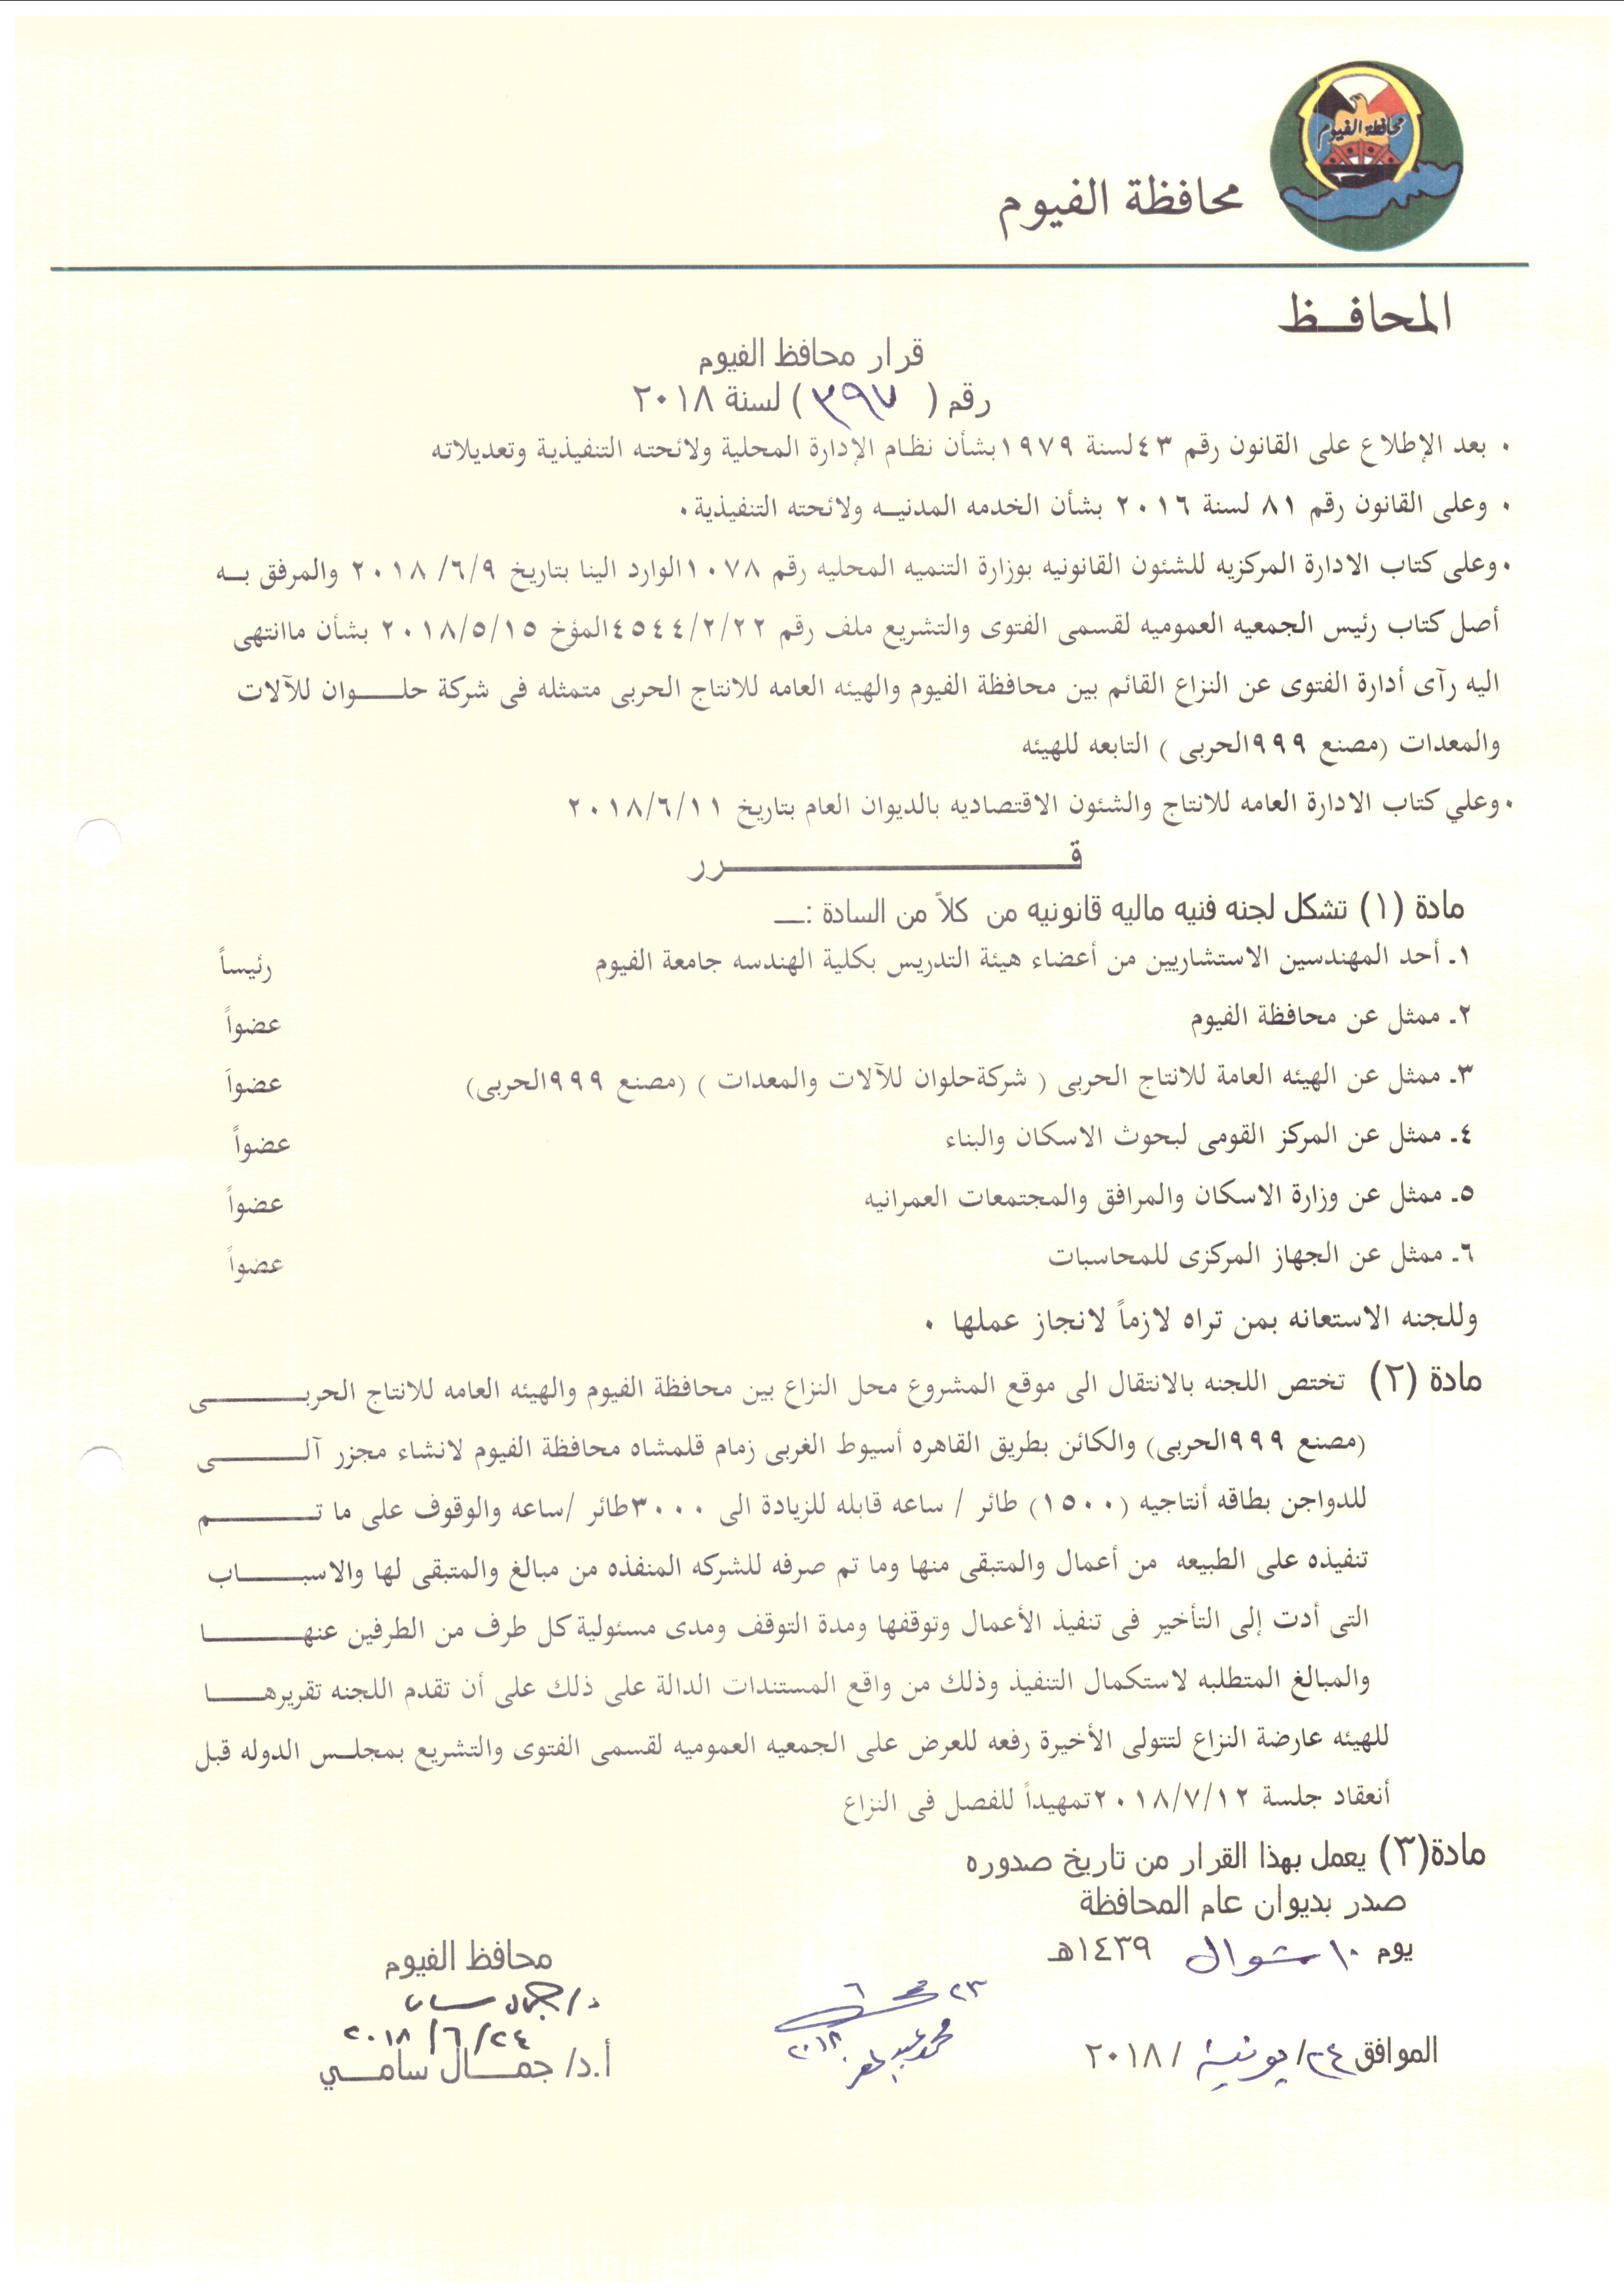 محافظة الفيوم
محافظة الفيوم
المحافـــظ
قرار محافظ الفيوم
رقم ( ٣٩٧ ) لسنة ٢٠١٨
• بعد الإطلاع على القانون رقم ٤٣ لسنة ١٩٧٩ بشأن نظام الإدارة المحلية ولائحته التنفيذية وتعديلاته
• وعلى القانون رقم ٨١ لسنة ٢٠١٦ بشأن الخدمه المدنيــه ولائحته التنفيذية٠
•وعلى كتاب الادارة المركزيه للشئون القانونيه بوزارة التنميه المحليه رقم ١٠٧٨ الوارد الينا بتاريخ ٢٠١٨/٦/٩ والمرفق بــه
أصل كتاب رئيس الجمعيه العموميه لقسمى الفتوى والتشريع ملف رقم ٤٥٤٤/٢/٢٢ المؤخ ٢٠١٨/٥/١٥ بشأن ماانتهى
اليه رآى أدارة الفتوى عن النزاع القائم بين محافظة الفيوم والهيئه العامه للانتاج الحربى متمثله فى شركة حلــــوان للآلات
والمعدات (مصنع ٩٩٩ الحربى ) التابعه للهيئه
•وعلي كتاب الادارة العامه للانتاج والشئون الاقتصاديه بالديوان العام بتاريخ ٢٠١٨/٦/١١
قــــــــــــــــــــرر
مادة (١) تشكل لجنه فنيه ماليه قانونيه من كلاً من السادة :ــ
١ـ أحد المهندسين الاستشاريين من أعضاء هيئة التدريس بكلية الهندسه جامعة الفيوم رئيساً
٢ـ ممثل عن محافظة الفيوم عضواً
٣ـ ممثل عن الهيئه العامة للانتاج الحربى ( شركةحلوان للآلات والمعدات ) (مصنع ٩٩٩ الحربى) عضواً
٤ـ ممثل عن المركز القومى لبحوث الاسكان والبناء عضواً
٥ـ ممثل عن وزارة الاسكان والمرافق والمجتمعات العمرانيه عضواً
٦ـ ممثل عن الجهاز المركزى للمحاسبات عضواً
وللجنه الاستعانه بمن تراه لازماً لانجاز عملها ٠
مادة (٢) تختص اللجنه بالانتقال الى موقع المشروع محل النزاع بين محافظة الفيوم والهيئه العامه للانتاج الحربــــــى
(مصنع ٩٩٩ الحربى) والكائن بطريق القاهره أسيوط الغربى زمام قلمشاه محافظة الفيوم لانشاء مجزر آلــــــى
للدواجن بطاقه أنتاجيه (١٥٠٠) طائر / ساعه قابله للزيادة الى ٣٠٠٠ طائر /ساعه والوقوف على ما تــــــم
تنفيذه على الطبيعه من أعمال والمتبقى منها وما تم صرفه للشركه المنفذه من مبالغ والمتبقى لها والاسبــــــاب
التى أدت إلى التأخير فى تنفيذ الأعمال وتوقفها ومدة التوقف ومدى مسئولية كل طرف من الطرفين عنهــــــا
والمبالغ المتطلبه لاستكمال التنفيذ وذلك من واقع المستندات الدالة على ذلك على أن تقدم اللجنه تقريرهــــا
للهيئه عارضة النزاع لتتولى الأخيرة رفعه للعرض على الجمعيه العموميه لقسمى الفتوى والتشريع بمجلــس الدوله قبل
أنعقاد جلسة ٢٠١٨/٧/١٢ تمهيداً للفصل فى النزاع
مادة(٣) يعمل بهذا القرار من تاريخ صدوره
صدر بديوان عام المحافظة
يوم ١٠ شوال ١٤٣٩هـ
الموافق ٢٤/ يونية / ٢٠١٨
٢٣
٦
٢٠١٨
محافظ الفيوم
د/ جمال سامى
٢٠١٨/٦/٢٤
أ.د/ جمــــال سامــــي